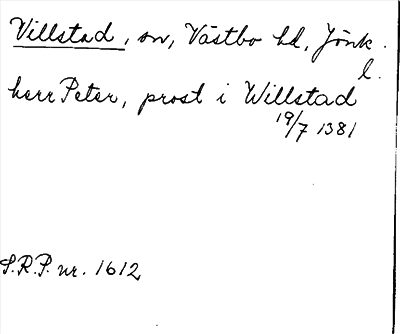 Villstad, sn, Västbo hd, Jönk.
l.
herr Peter, prost i Willstad
19/7 1381
S.R.P. nr. 1612